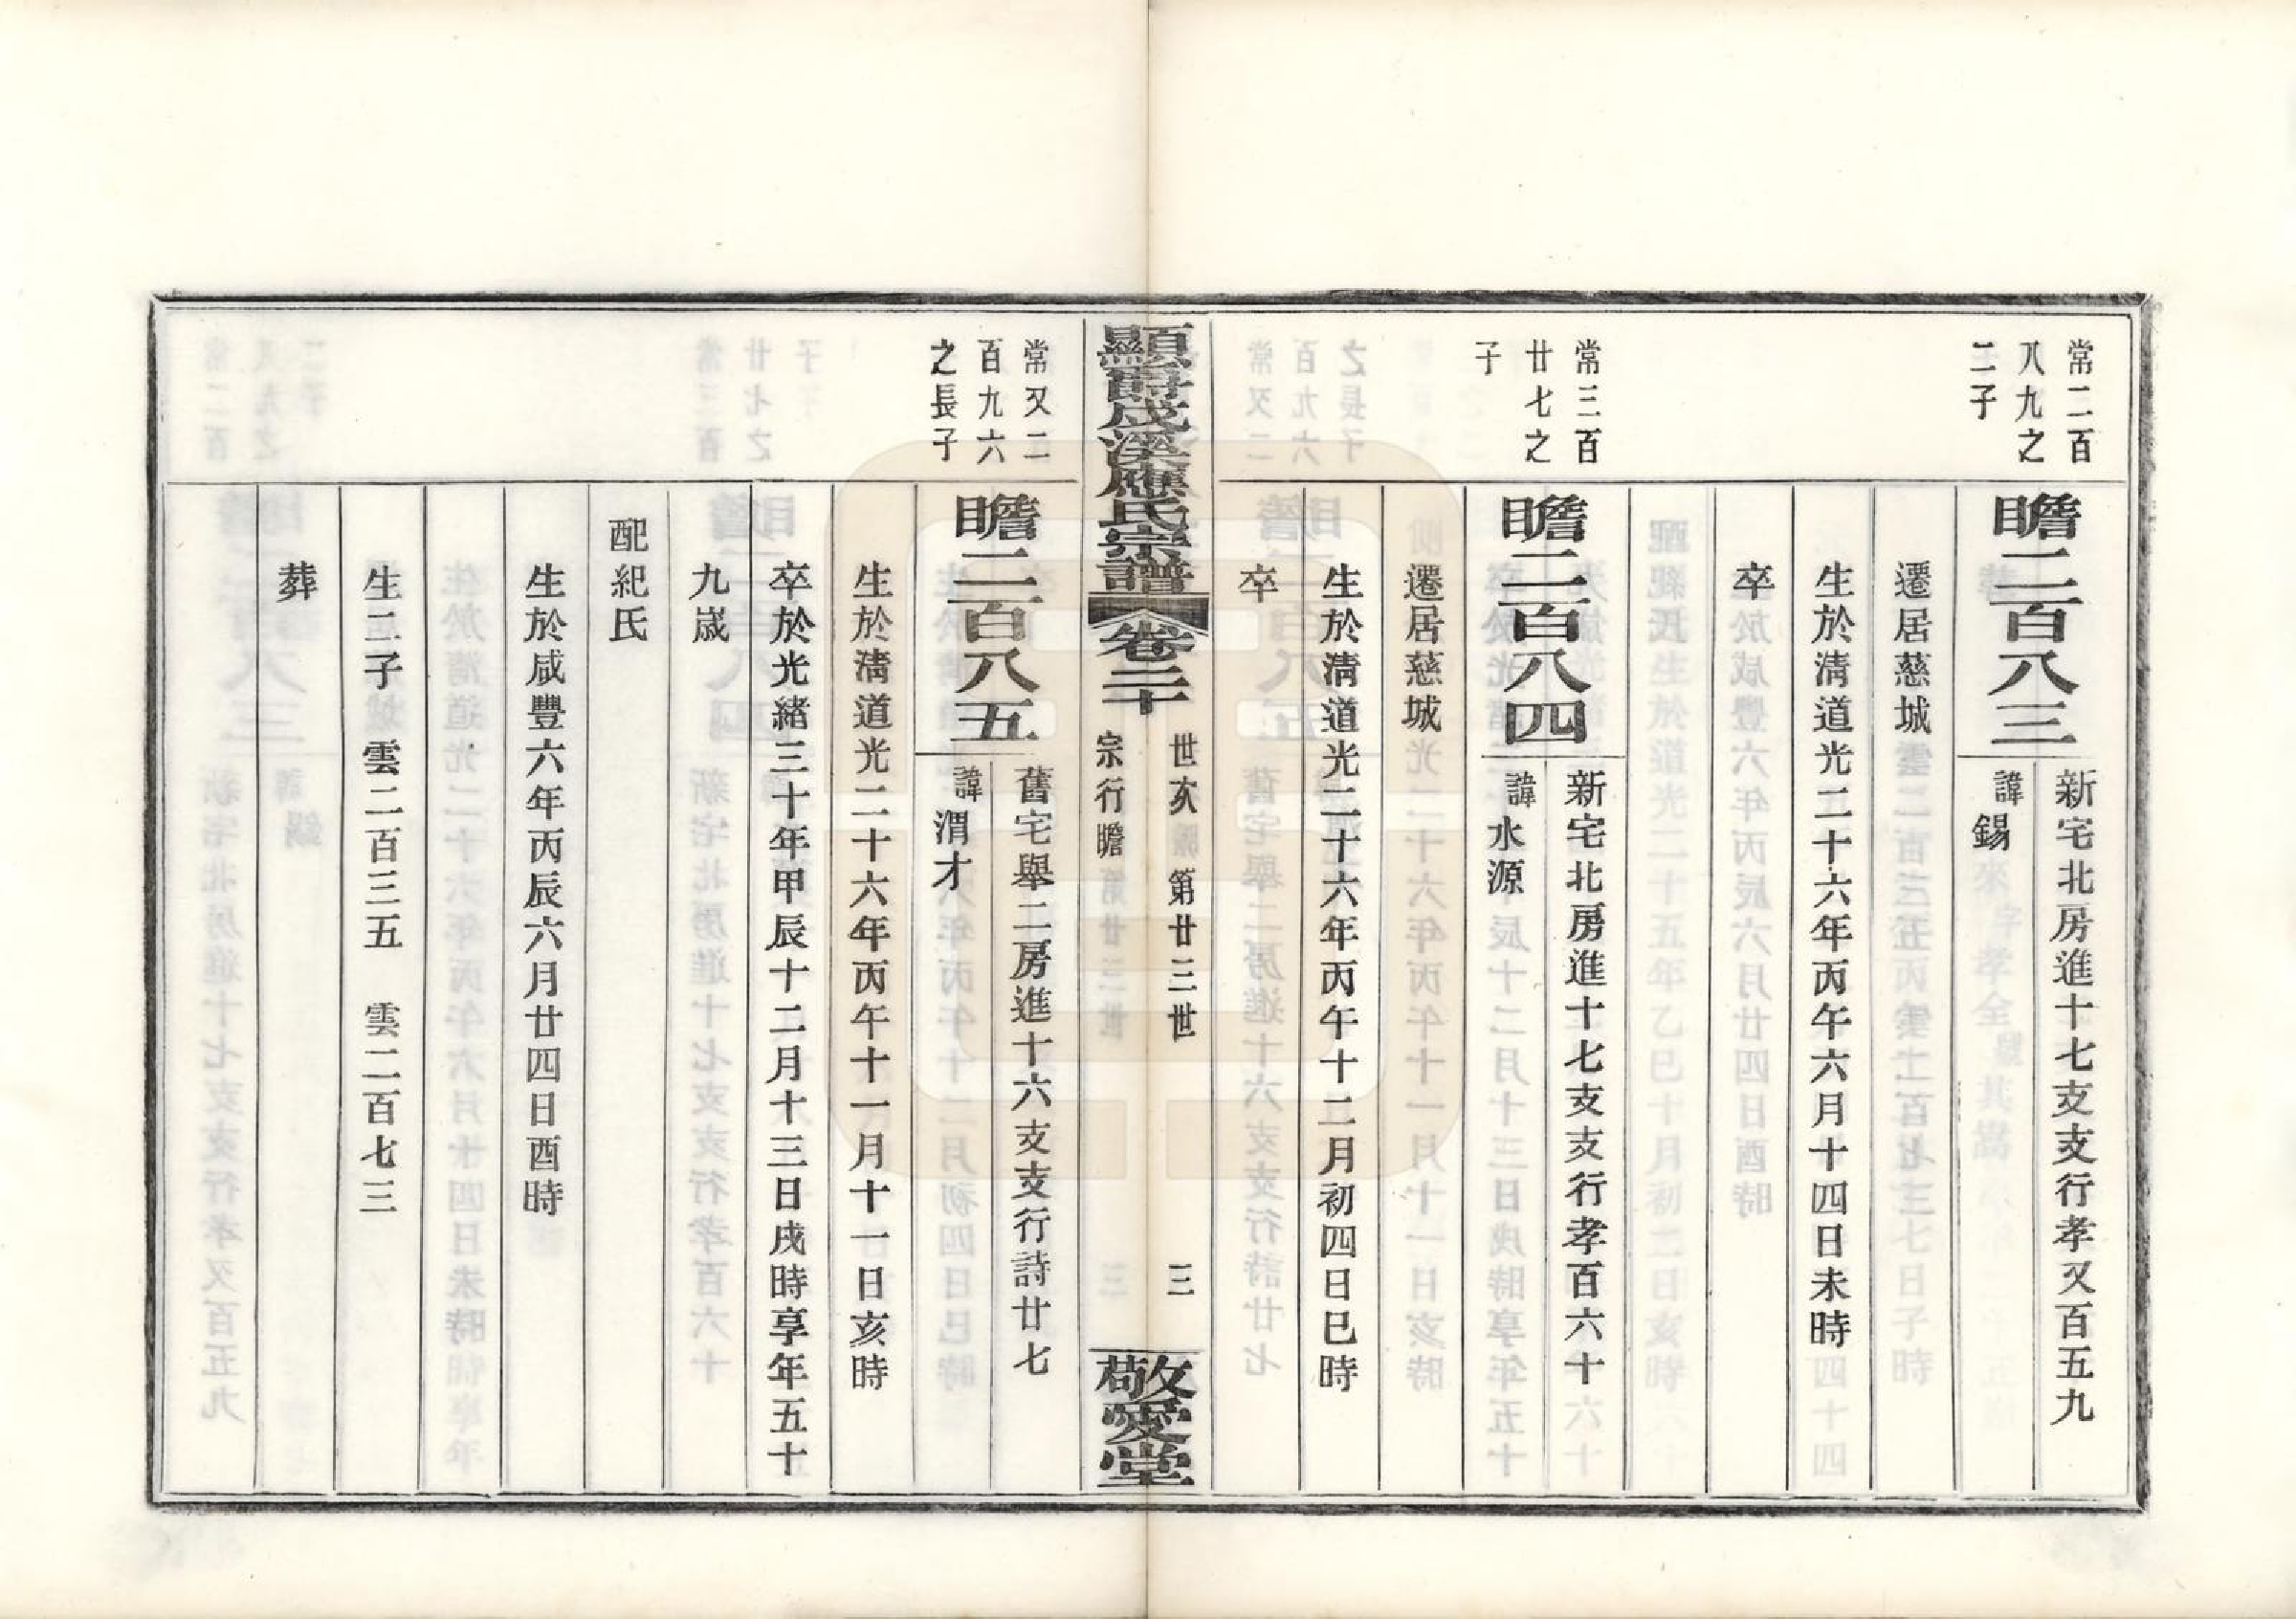 常二百
八九之
二子
瞻二百八三
新宅北房進十七支支行孝又百五九
諱錫
遷居慈城
生於淸道光二十六年丙午六月十四日未時
卒
常三百
廿七之
子
瞻二百八四
新宅北房進十七支支行孝百六十
諱水源
遷居慈城
生於淸道光二十六年丙午十二月初四日巳時
卒
顯爵戍溪應氏宗譜 卷二十
世次 第廿三世
宗行瞻
三
敬愛堂
常又二
百九六
之長子
瞻二百八五
舊宅舉二房進十六支支行詩廿七
諱渭才
生於淸道光二十六年丙午十一月十一日亥時
卒於光緒三十年甲辰十二月十三日戌時享年五十
九歲
配紀氏
生於咸豐六年丙辰六月廿四日酉時
生二子 雲二百三五 雲二百七三
葬